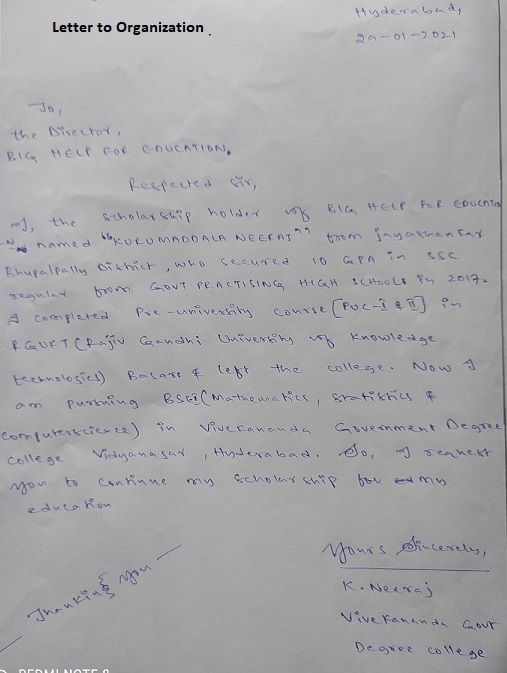 Letter to Organization .
Hyderabad,
29-01-2021
To,
the Director,
BIG HELP FOR EDUCATION.
Respected Sir,
I, the scholarship holder of BIG HELP FOR EDUCATION
named "KURUMADDALA NEERAJ" from jayashankar
Bhupalpally District, who secured 10 GPA in SSC
regular from GOVT PRACTISING HIGH SCHOOLS in 2017.
I completed Pre-university course [PUC-I & II] in
RGUKT (Rajiv Gandhi University of Knowledge
technologies) Basara & left the college. Now I
am pursuing BSC (Mathematics, Statistics &
Computerscience) in Vivekananda Government Degree
college Vidyanagar, Hyderabad. So, I request
you to continue my scholarship for my
education
Yours Sincerely,
Thanking you
K. Neeraj
Vivekananda Govt
Degree college
REDMI NOTE 8